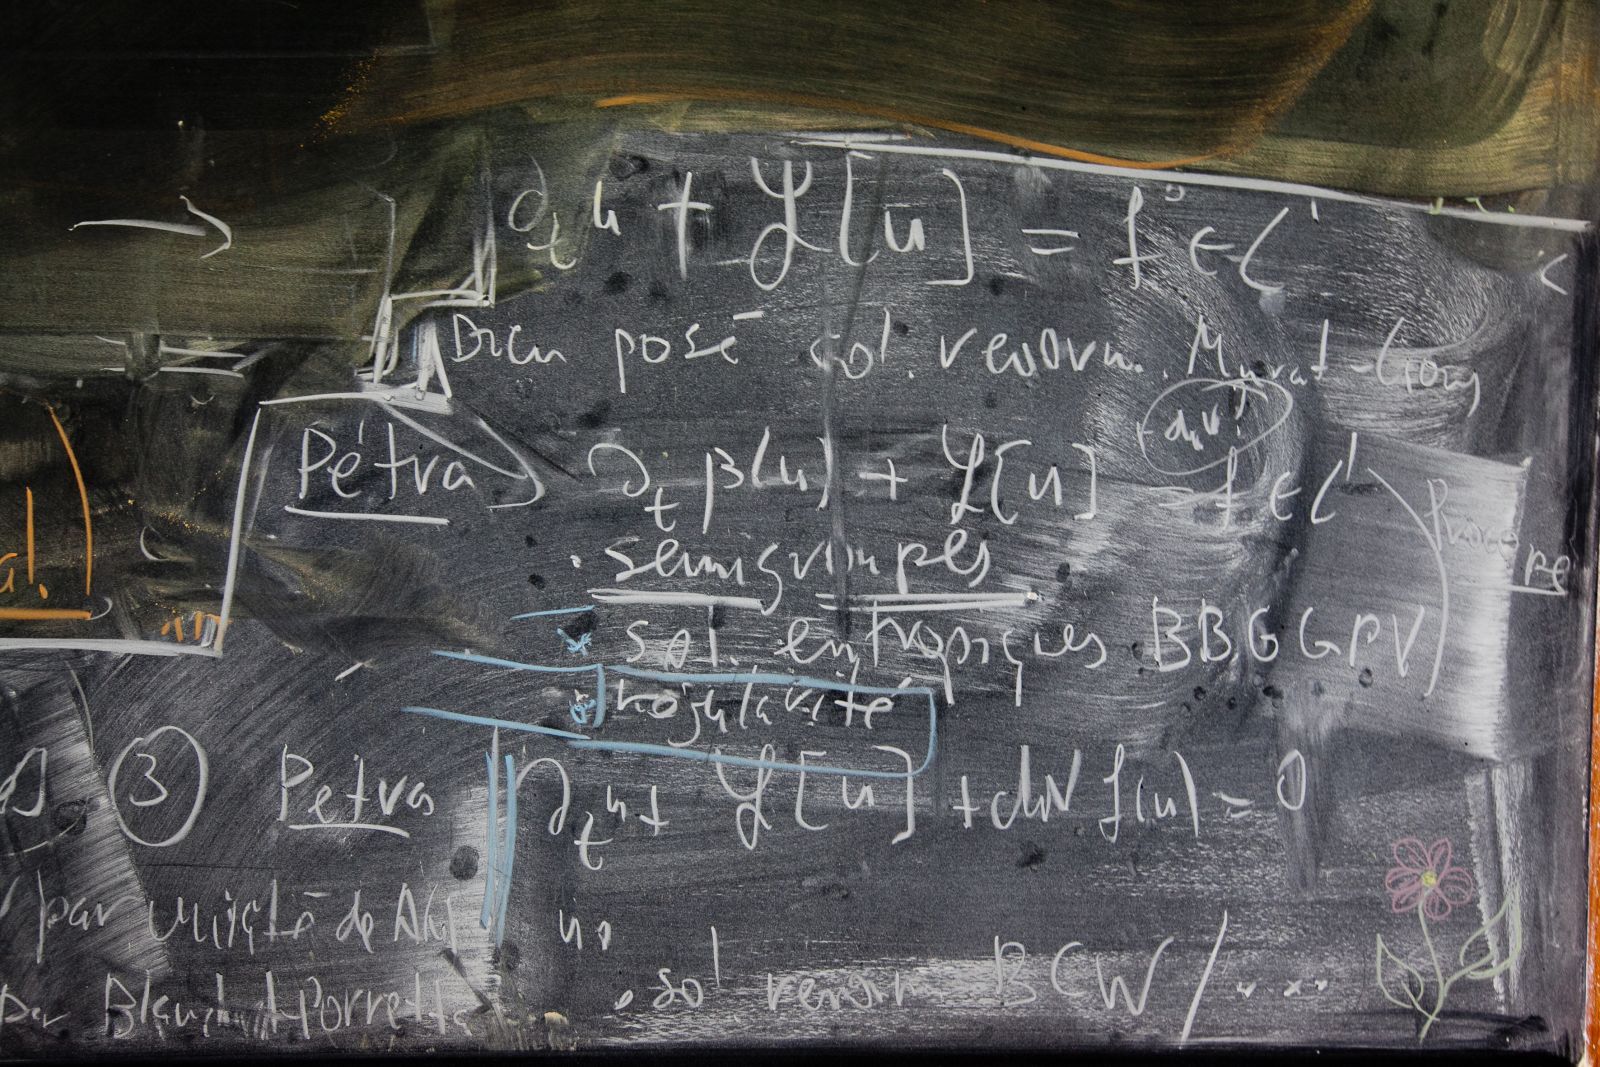 → ∂ₜu + ℒ[u] = f ∈ L¹
Bien posé sol. renorm. Murat-Lions
-div
Pétra ∂ₜβ(u) + ℒ[u] = f ∈ L¹
. semigroupes
sol. entropiques BBGGPV
régularité
al.
③ Petra ∂ₜu + ℒ[u] + div f(u) = 0
par unicité de u₀
par Blanchard-Porretta . sol renorm BCW / ...